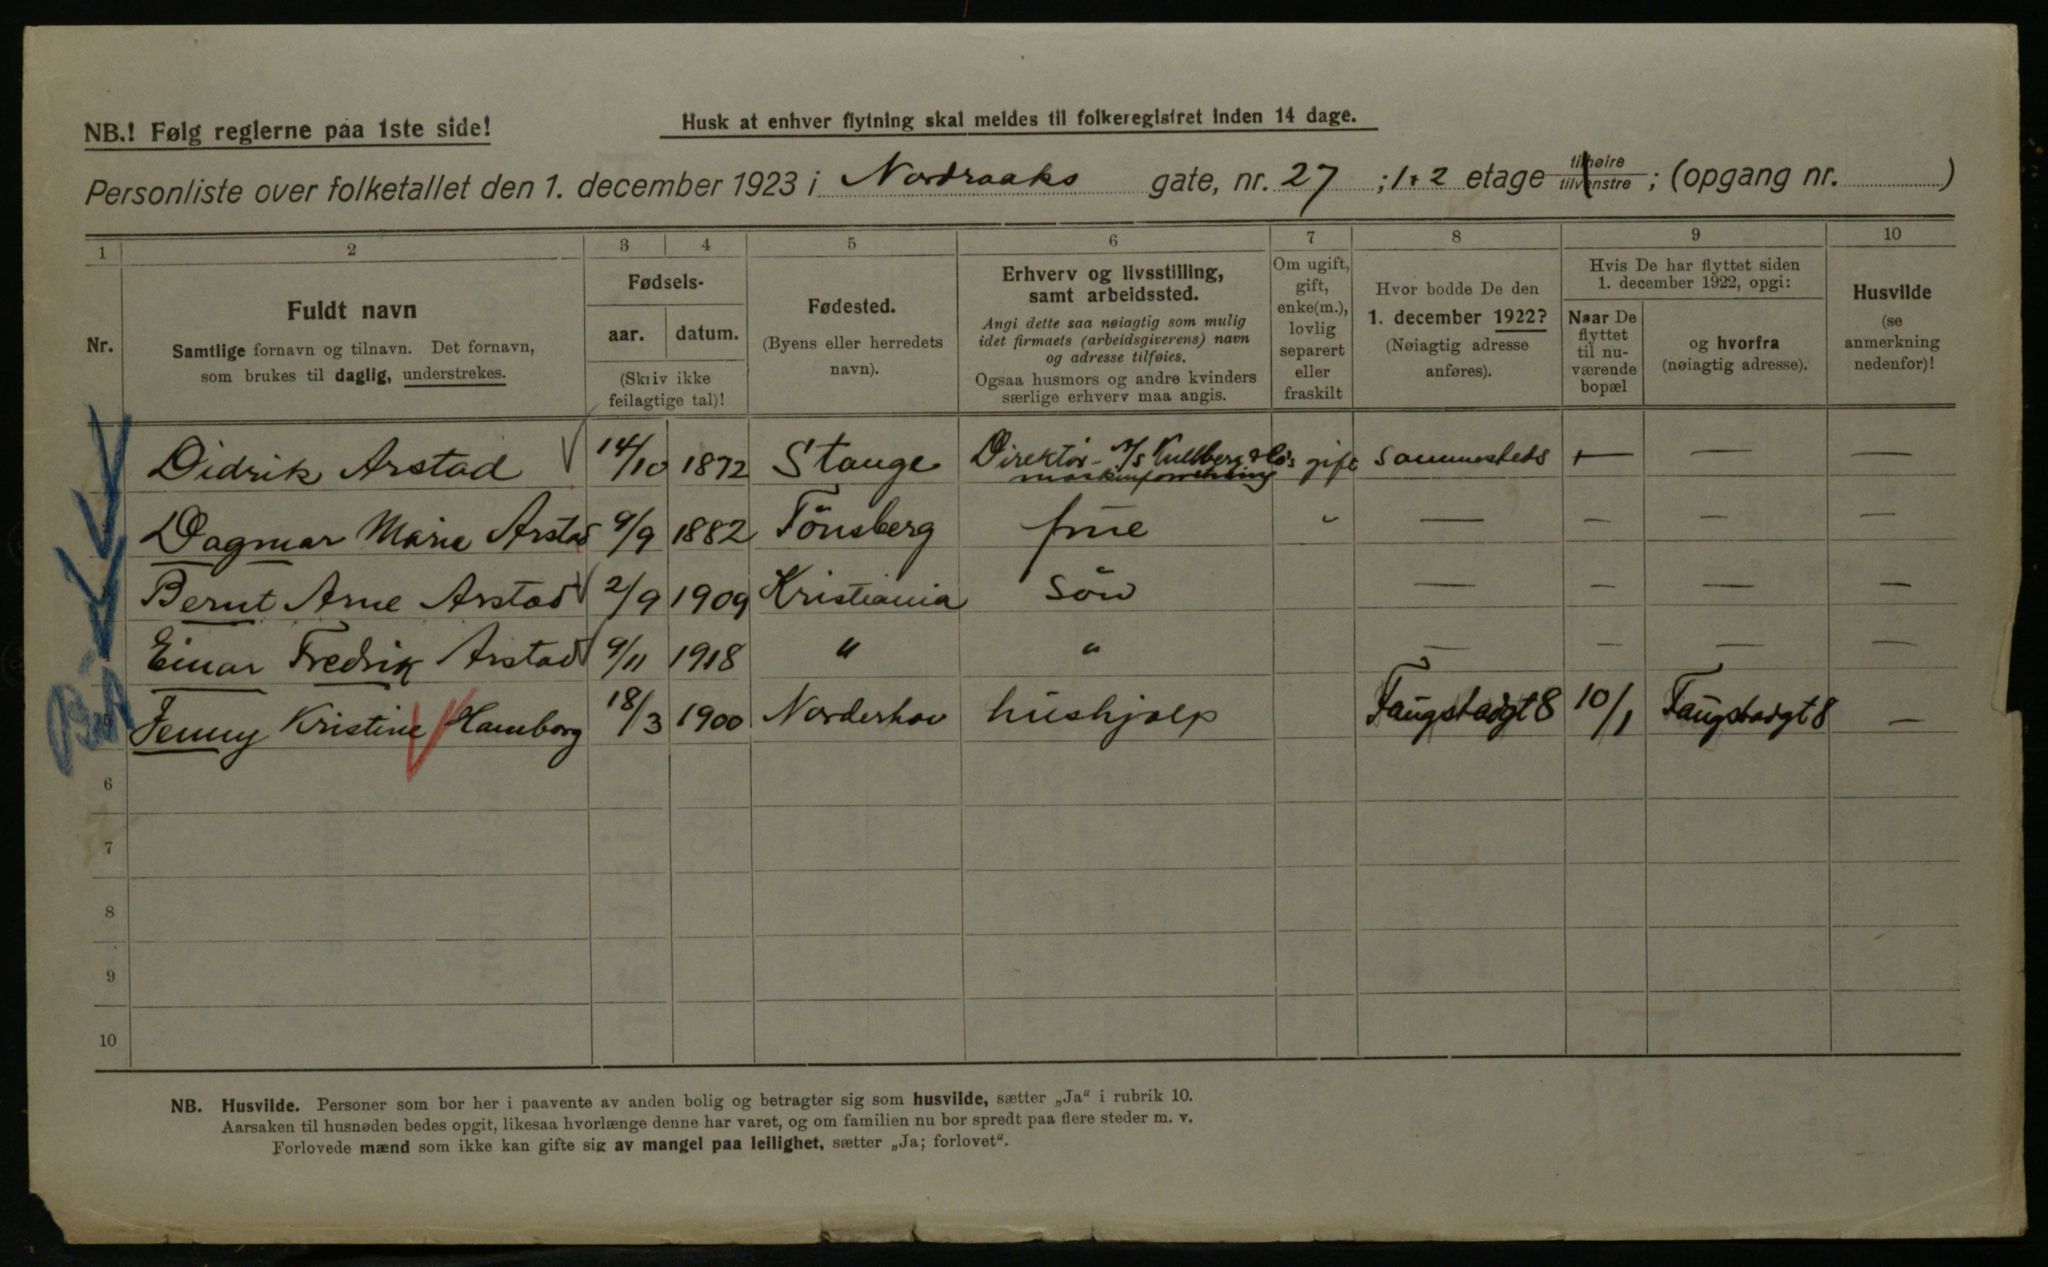 NB.! Følg reglerne paa 1ste side!
Husk at enhver flytning skal meldes til folkeregistret inden 14 dage.
Personliste over folketallet den 1. december 1923 i Nordraaks gate, nr. 27 ; 1+2 etage tilhøire tilvenstre ; (opgang nr. )
1 2 3 4 5 6 7 8 9 10
Nr.
Fuldt navn
Samtlige fornavn og tilnavn. Det fornavn,
som brukes til daglig, understrekes.
Fødsels-
aar. datum.
(Skriv ikke
feilagtige tal)!
Fødested.
(Byens eller herredets
navn).
Erhverv og livsstilling,
samt arbeidssted.
Angi dette saa nøiagtig som mulig
idet firmaets (arbeidsgiverens) navn
og adresse tilføies.
Ogsaa husmors og andre kvinders
særlige erhverv maa angis.
Om ugift,
gift,
enke(m.),
lovlig
separert
eller
fraskilt
Hvor bodde De den
1. december 1922?
(Nøiagtig adresse
anføres).
Hvis De har flyttet siden
1. december 1922, opgi:
Naar De
flyttet
til nu-
værende
bopæl
og hvorfra
(nøiagtig adresse).
Husvilde
(se
anmerkning
nedenfor)!
Didrik Arstad 14/10 1872 Stange Direktör - A/S Kullberg & Co's gift sammesteds — — —
Dagmar Marie Arstad 9/9 1882 Tönsberg frue " — — — —
Bernt Arne Arstad 2/9 1909 Kristiania Sön — — — —
Einar Fredrik Arstad 9/11 1918 " " — — — —
5 Jenny Kristine Hamborg 18/3 1900 Norderhov hushjælp Faugstadgt 8 10/1 Faugstadgt 8 —
6
7
8
9
10
NB. Husvilde. Personer som bor her i paavente av anden bolig og betragter sig som husvilde, sætter „Ja“ i rubrik 10.
Aarsaken til husnøden bedes opgit, likesaa hvorlænge denne har varet, og om familien nu bor spredt paa flere steder m. v.
Forlovede mænd som ikke kan gifte sig av mangel paa leilighet, sætter „Ja; forlovet“.